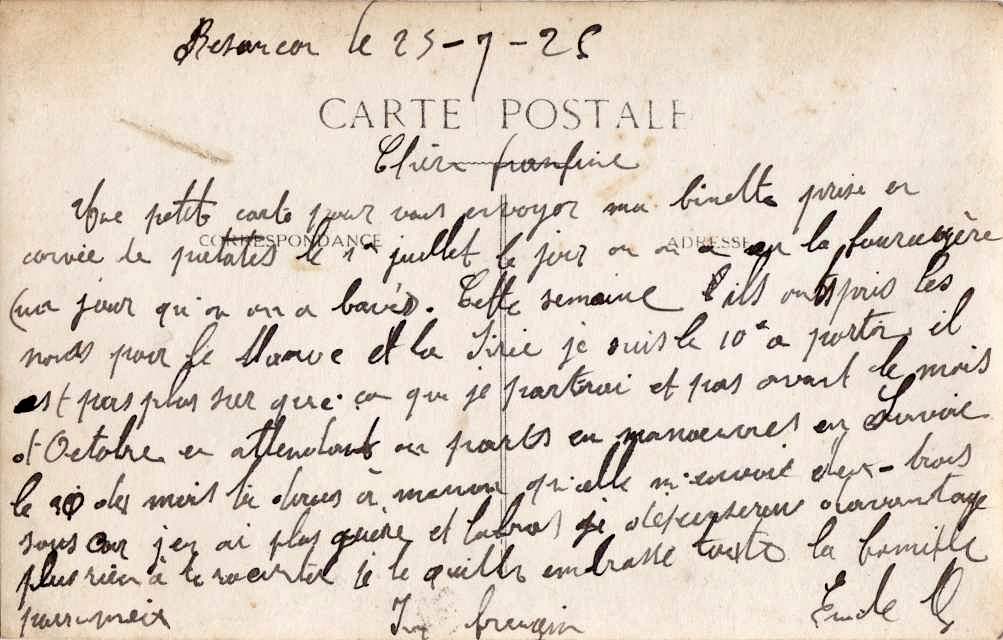 Besancon le 25-7-25
CARTE POSTALE
Chère
Une petite carte pour vous envoyer ma binette prise en
CORRESPONDANCE
ADRESSE
corvée de patates le 1er juillet le jour ou on a eu la fourragère
(un jour qu'on on a bavés). Cette semaine ils onts pris les
noms pour le Maroc et la Sirie je suis le 10e a partir, il
est pas plus sur que ca que je partirai et pas avant le mois
d'Octobre en attendant on parts en manoeuvres en Savoie
le des mois tu diras à maman qu'elle m'envoie deux-trois
sous car j'en ai plus guère et labas je dépenserais davantage
plus rien à te raconter je te quitte embrasse toute la famille
pour moix
Ton frangin
Emile